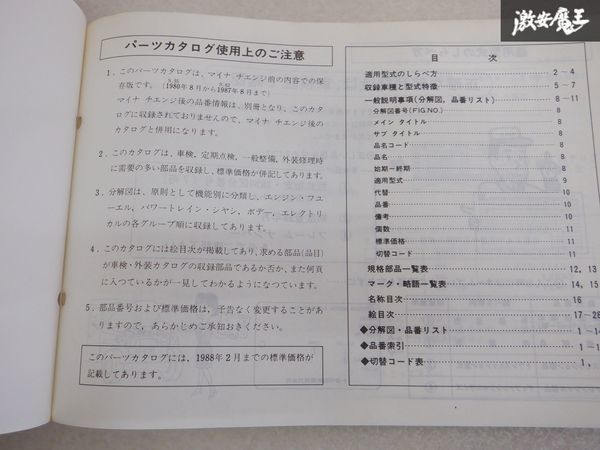 激安魔王
パーツカタログ使用上のご注意
1. このパーツカタログは、マイナ チエンジ前の内容での保
存版です。（1980年8月から1987年8月まで）
マイナ チエンジ後の品番情報は、別冊となり、このカタ
ログに収録されておりませんので、マイナ チエンジ後の
カタログと併用になります。
2. このカタログは、車検，定期点検，一般整備，外装修理時
に需要の多い部品を収録し、標準価格が併記してあります。
3. 分解図は、原則として機能別に分類し、エンジン・フユ
ーエル，パワートレイン・シヤシ，ボデー，エレクトリ
カルの各グループ順に収録してあります。
4. このカタログには絵目次が掲載してあり、求める部品（品目）
が車検・外装カタログの収録部品であるか否か、また何頁
に入つているかが一見してわかるようになつています。
5. 部品番号および標準価格は、予告なく変更することがあ
りますので、あらかじめご承知おきください。
このパーツカタログには、1988年2月までの標準価格が
記載してあります。
目 次
適用型式のしらべ方 2～4
収録車種と型式特徴 5～7
一般説明事項（分解図、品番リスト） 8～11
分解図番号（FIG.NO.） 8
メイン タイトル 8
サブ タイトル 8
品名コード 8
品名 8
始期－終期 8
適用型式 9
代替 10
品番 10
備考 10
個数 11
標準価格 11
切替コード 11
規格部品一覧表 12，13
マーク・略語一覧表 14，15
名称目次 16
絵目次 17～28
◆分解図・品番リスト 1～14
◆品番索引 1～1
◆切替コード表 1，